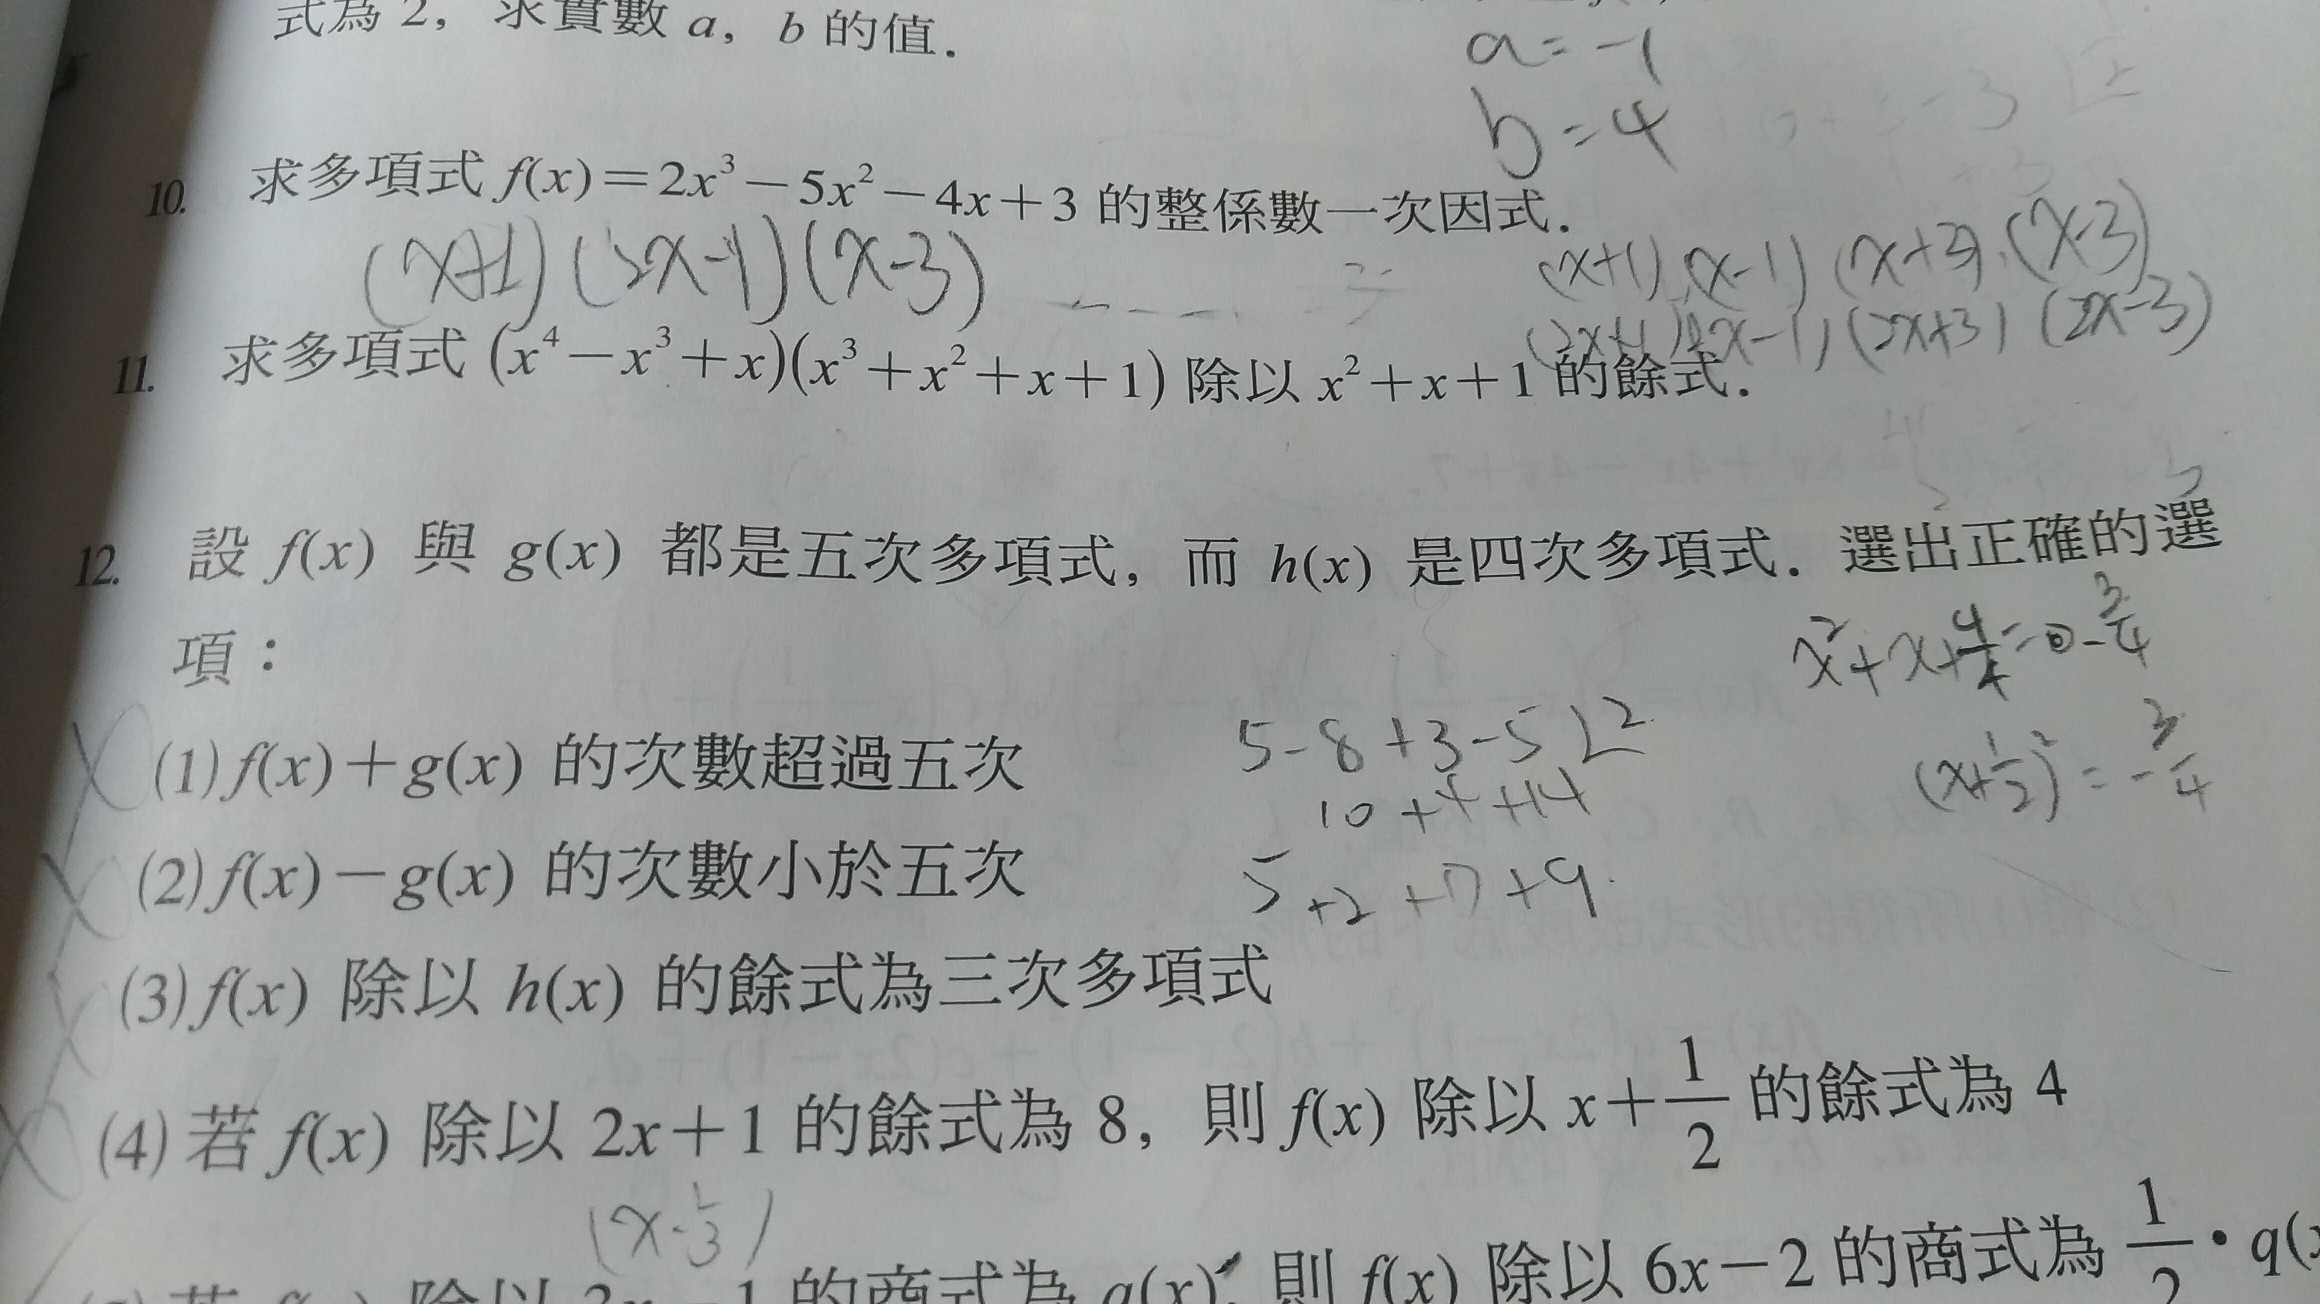 式為 2，求實數 a，b 的值．
a=-1
b=4
10. 求多項式 f(x)=2x³-5x²-4x+3 的整係數一次因式．
(x+1)(2x-1)(x-3)
(x+1),(x-1)(x+3),(x-3)
(2x+1)(2x-1),(2x+3)(2x-3)
11. 求多項式 (x⁴-x³+x)(x³+x²+x+1) 除以 x²+x+1 的餘式．
12. 設 f(x) 與 g(x) 都是五次多項式，而 h(x) 是四次多項式．選出正確的選
項：
x²+x+4/4=0-3/4
(x+1/2)²=-3/4
(1) f(x)+g(x) 的次數超過五次
5-8+3-5 2
10+4+14
5+2+7+9
(2) f(x)-g(x) 的次數小於五次
(3) f(x) 除以 h(x) 的餘式為三次多項式
(4) 若 f(x) 除以 2x+1 的餘式為 8，則 f(x) 除以 x+1/2 的餘式為 4
(x-1/3)
的商式為 q(x)，則 f(x) 除以 6x-2 的商式為 1/2·q(